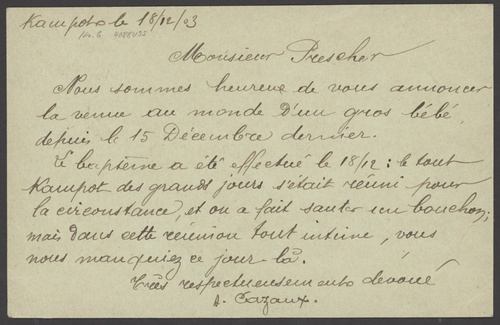 Kampot le 18/12/03
Monsieur Prescher
Nous sommes heureux de vous annoncer
la venue au monde d'un gros bébé
depuis le 15 Décembre dernier.
Le baptême a été effectué le 18/12 : le tout
Kampot des grands jours s'était réuni pour
la circonstance, et on a fait sauter un bouchon;
mais dans cette réunion tout intime, vous
nous manquiez ce jour là.
Très respectueusement dévoué
A. Cazaux.